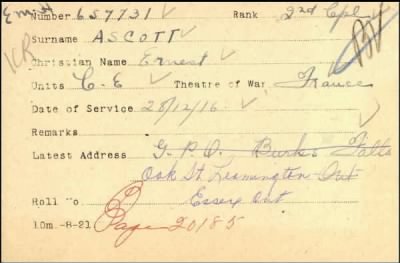 Em. H
Number 657731 Rank 2nd Cpl
Surname ASCOTT
KR
Christian Name Ernest
Units C.E Theatre of War France
Date of Service 28/12/16
Remarks
Latest Address G.P.O. Burks Falls
Oak St Leamington Ont
Roll No Essex Ont
10m.-8-21 Page 20185